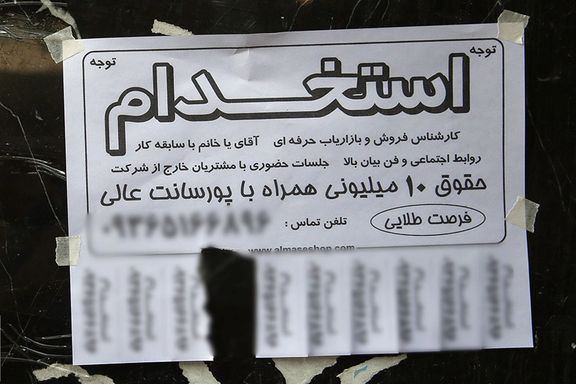 توجه
توجه
استخدام
کارشناس فروش و بازاریاب حرفه ای آقای یا خانم با سابقه کار
روابط اجتماعی و فن بیان بالا جلسات حضوری با مشتریان خارج از شرکت
حقوق ۱۰ میلیونی همراه با پورسانت عالی
فرصت طلایی تلفن تماس :
www.almaseshop.com